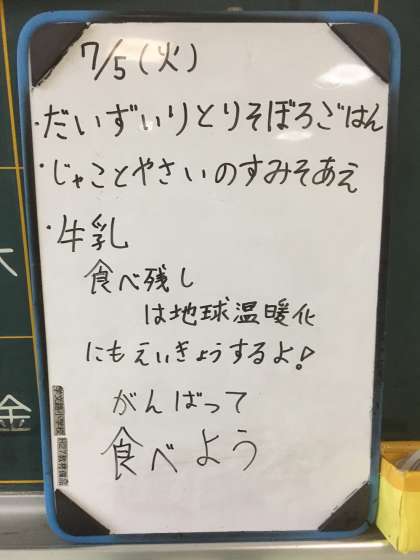 7/5(火)
・だいずいりとりそぼろごはん
・じゃことやさいのすみそあえ
・牛乳
食べ残し
は地球温暖化
にもえいきょうするよ!
がんばって
食べよう
金